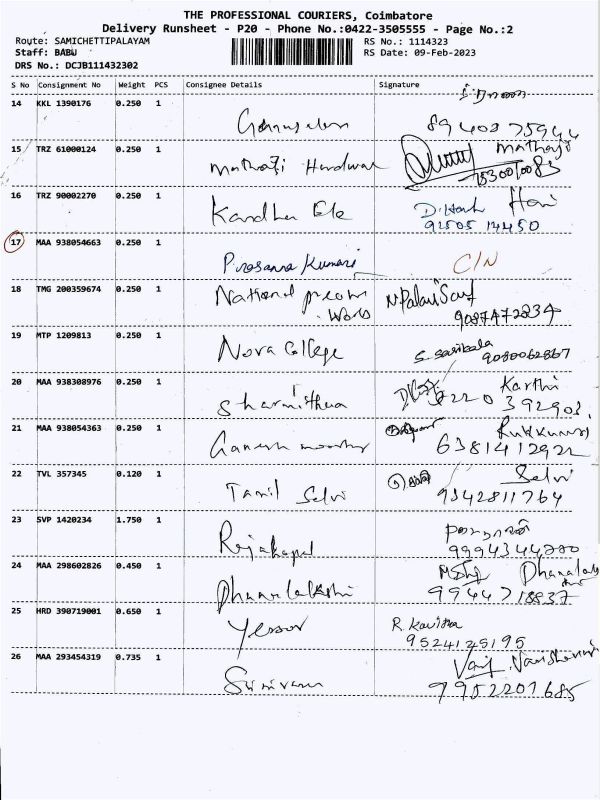 THE PROFESSIONAL COURIERS, Coimbatore
Delivery Runsheet - P20 - Phone No.:0422-3505555 - Page No.:2
Route: SAMICHETTIPALAYAM RS No.: 1114323
Staff: BABU RS Date: 09-Feb-2023
DRS No.: DCJB111432302
S No Consignment No Weight PCS Consignee Details Signature
14 KKL 1390176 0.250 1
8940375944
15 TRZ 61000124 0.250 1 Mathaji Hardwar Mathaji
16 TRZ 90002270 0.250 1 Kandha Ele Hari
17 MAA 938054663 0.250 1
Prasanna Kumari C/N
18 TMG 200359674 0.250 1 National
Works
9087472834
19 MTP 1209813 0.250 1
Nova College S. Sasikala 9080062867
20 MAA 938308976 0.250 1 Karthi
Sharmisthaa
21 MAA 938054363 0.250 1 Rukkumani
Ganesh 6381412922
22 TVL 357345 0.120 1 Selvi
Tamil Selvi 9342811764
23 SVP 1420234 1.750 1
Rajakopal 9994344280
24 MAA 298602826 0.450 1 Dhanalak
Dhanalakshi 9944718837
25 HRD 390719001 0.650 1 R. Kavitha
9524125195
26 MAA 293454319 0.735 1
7952201685